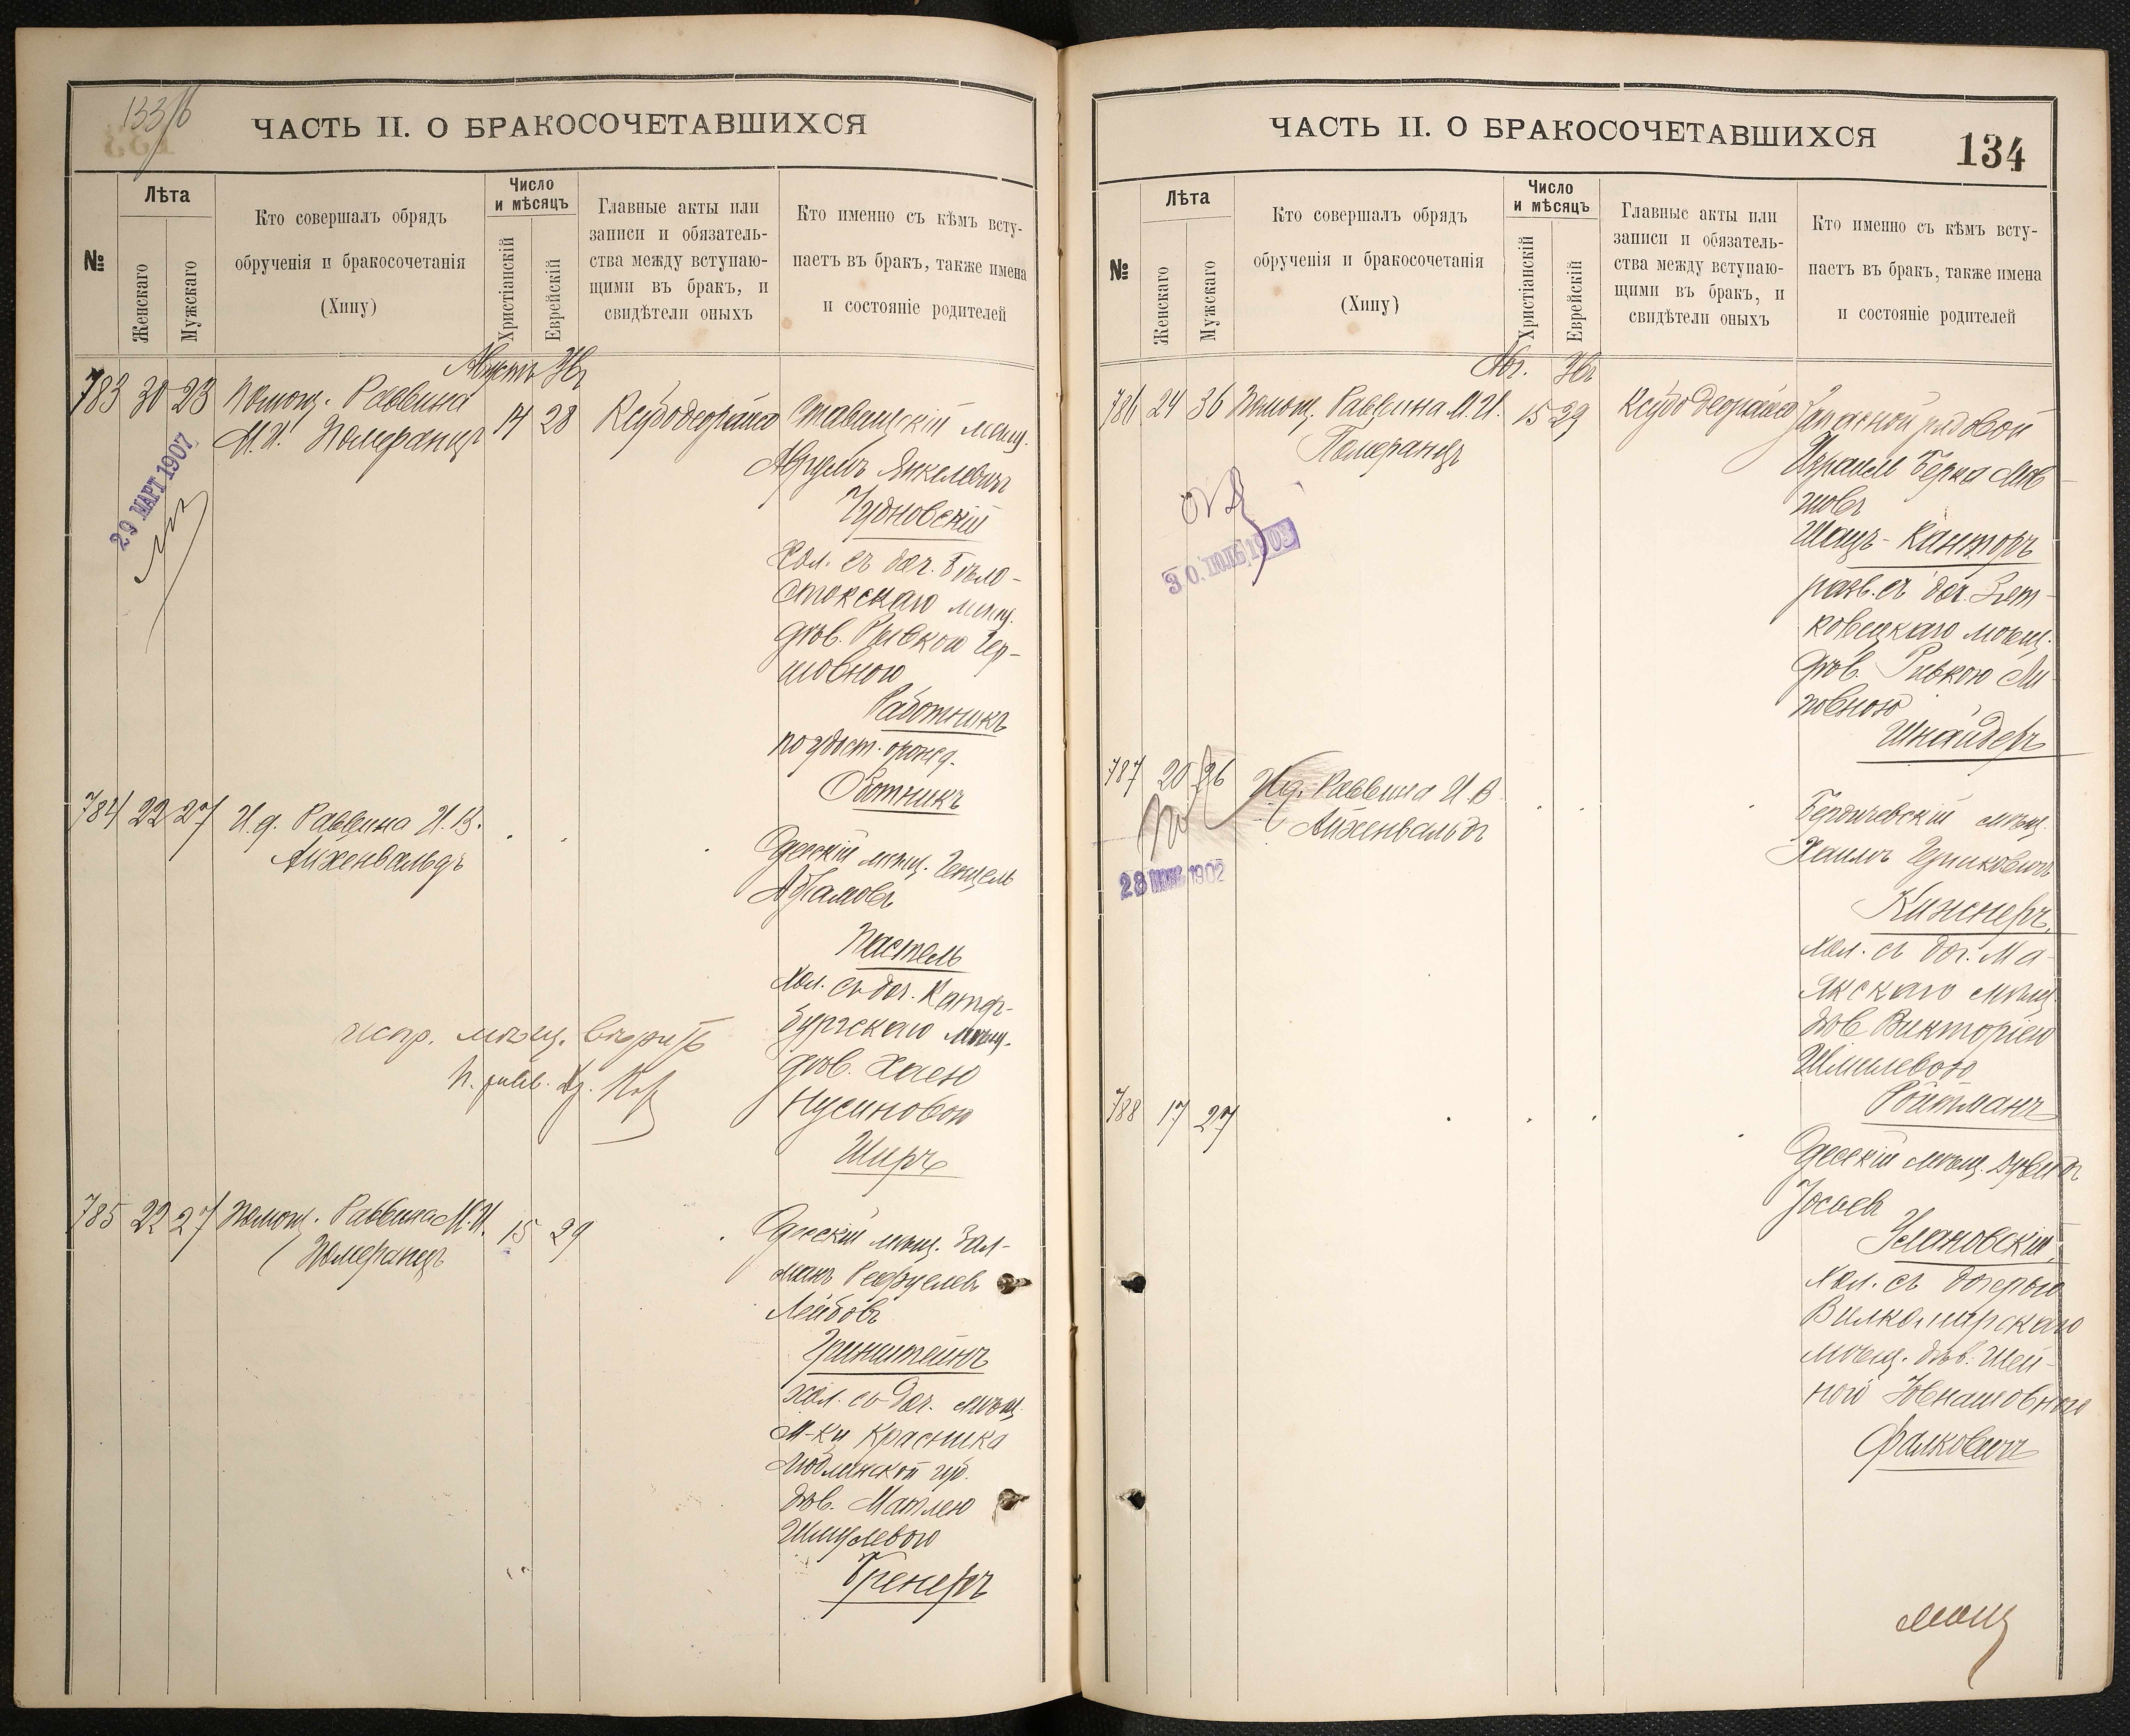 133/б
ЧАСТЬ II. О БРАКОСОЧЕТАВШИХСЯ
№
Лѣта
Женскаго
Мужскаго
Кто совершалъ обрядъ
обрученія и бракосочетанія
(Хипу)
Число
и мѣсяцъ
Христіанскій
Еврейскій
Главные акты или
записи и обязатель-
ства между вступаю-
щими въ бракъ, и
свидѣтели оныхъ
Кто именно съ кѣмъ всту-
паетъ въ бракъ, также имена
и состояніе родителей
Августъ
783 30 23 Помощ. Раввина
М.И. Померанцъ
14 28 Ксубодеорайса
Ставищскій мѣщ.
Аврумъ Янкелевичъ
Чудновскій
Хол. съ доч. Бѣло-
стокскаго мѣщ.
дѣв. Рывкою Гер-
шовною
Работникъ
по удост. оранд.
Оботникъ
29 МАРТ 1907
784 22 27 И.д. Раввина И.В.
Айхенвальдъ
Одесскій мѣщ. Гецель
Абрамовъ
Пастель
хол. съ доч.
бургскаго мѣщ.
дѣв. Хаею
Нусиновою
Ширъ
испр. мѣщ. вѣрить
785 22 27 Помощ. Раввина М.И.
Померанцъ
15 29
Одесскій мѣщ. Зал-
манъ Рефуелевъ
Лейбовъ
Гринштейнъ
хол. съ доч. мѣщ.
м-ки Красника
Люблинской губ.
дѣв. Матлею
Шмулевою
Бренеръ
ЧАСТЬ II. О БРАКОСОЧЕТАВШИХСЯ
134
№
Лѣта
Женскаго
Мужскаго
Кто совершалъ обрядъ
обрученія и бракосочетанія
(Хипу)
Число
и мѣсяцъ
Христіанскій
Еврейскій
Главные акты или
записи и обязатель-
ства между вступаю-
щими въ бракъ, и
свидѣтели оныхъ
Кто именно съ кѣмъ всту-
паетъ въ бракъ, также имена
и состояніе родителей
Авг.
786 24 36 Помощ. Раввина М.И.
Померанцъ
15 29 Ксубодеорайса
Запасной рядовой
Израиль Берка
Шацъ-Канторъ
разв. съ доч. Зет-
ковецкаго мѣщ.
дѣв. Ривкою Ли
повною
Шнайдеръ
30 ІЮЛЬ 1903
787 20 26 И.д. Раввина И.В.
Айхенвальдъ
Бердичевскій мѣщ.
Хаимъ Гершковичъ
Кижнеръ
хол. съ доч. Ма-
якскаго мѣщ.
дѣв. Викторіею
Шмилевою
Ройтманъ
28 1902
788 17 27
Одесскій мѣщ. Дувидъ
Іосьевъ
Улановскій
хол. съ дочерью
Вилкомирскаго
мѣщ. дѣв. Шей-
ною Іовнашовною
Фалковичъ